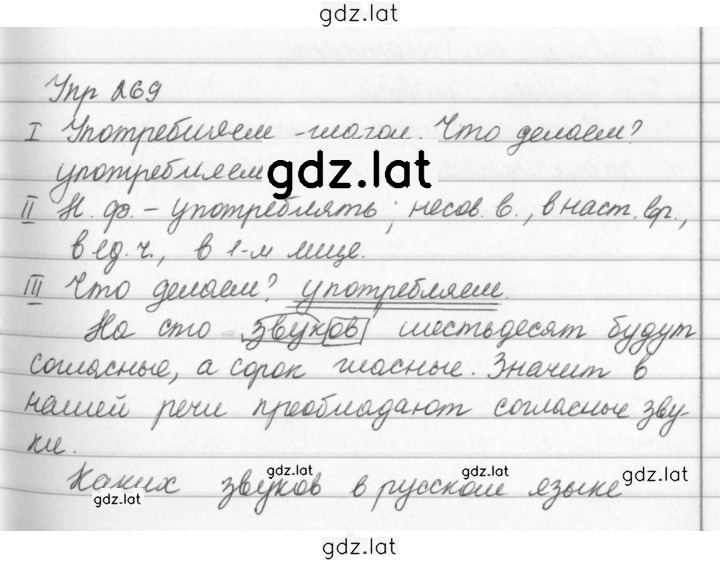 gdz.lat
Упр 269
I Употребляем - глагол. Что делаем?
употребляем
gdz.lat
II Н. ф. - употреблять; несов. в., в наст. вр.,
в ед. ч., в 1-м лице.
III Что делаем? употребляем.
На сто звуков шестьдесят будут
согласные, а сорок гласные. Значит в
нашей речи преобладают согласные зву-
ки.
gdz.lat gdz.lat
Каких звуков в русском языке
gdz.lat gdz.lat
gdz.lat